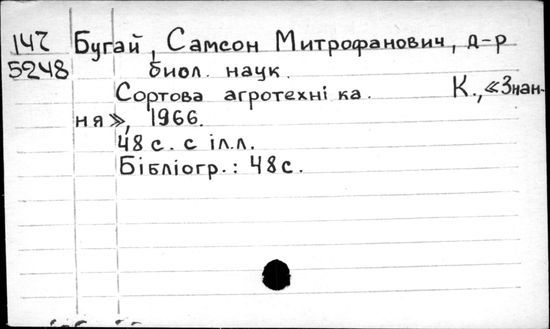 147 Бугай, Самсон Митрофанович, д-р
5248 биол. наук.
Сортова агротехніка. К., «Знан-
ня», 1966.
48 с. с іл.л.
Бібліогр.: 48 с.